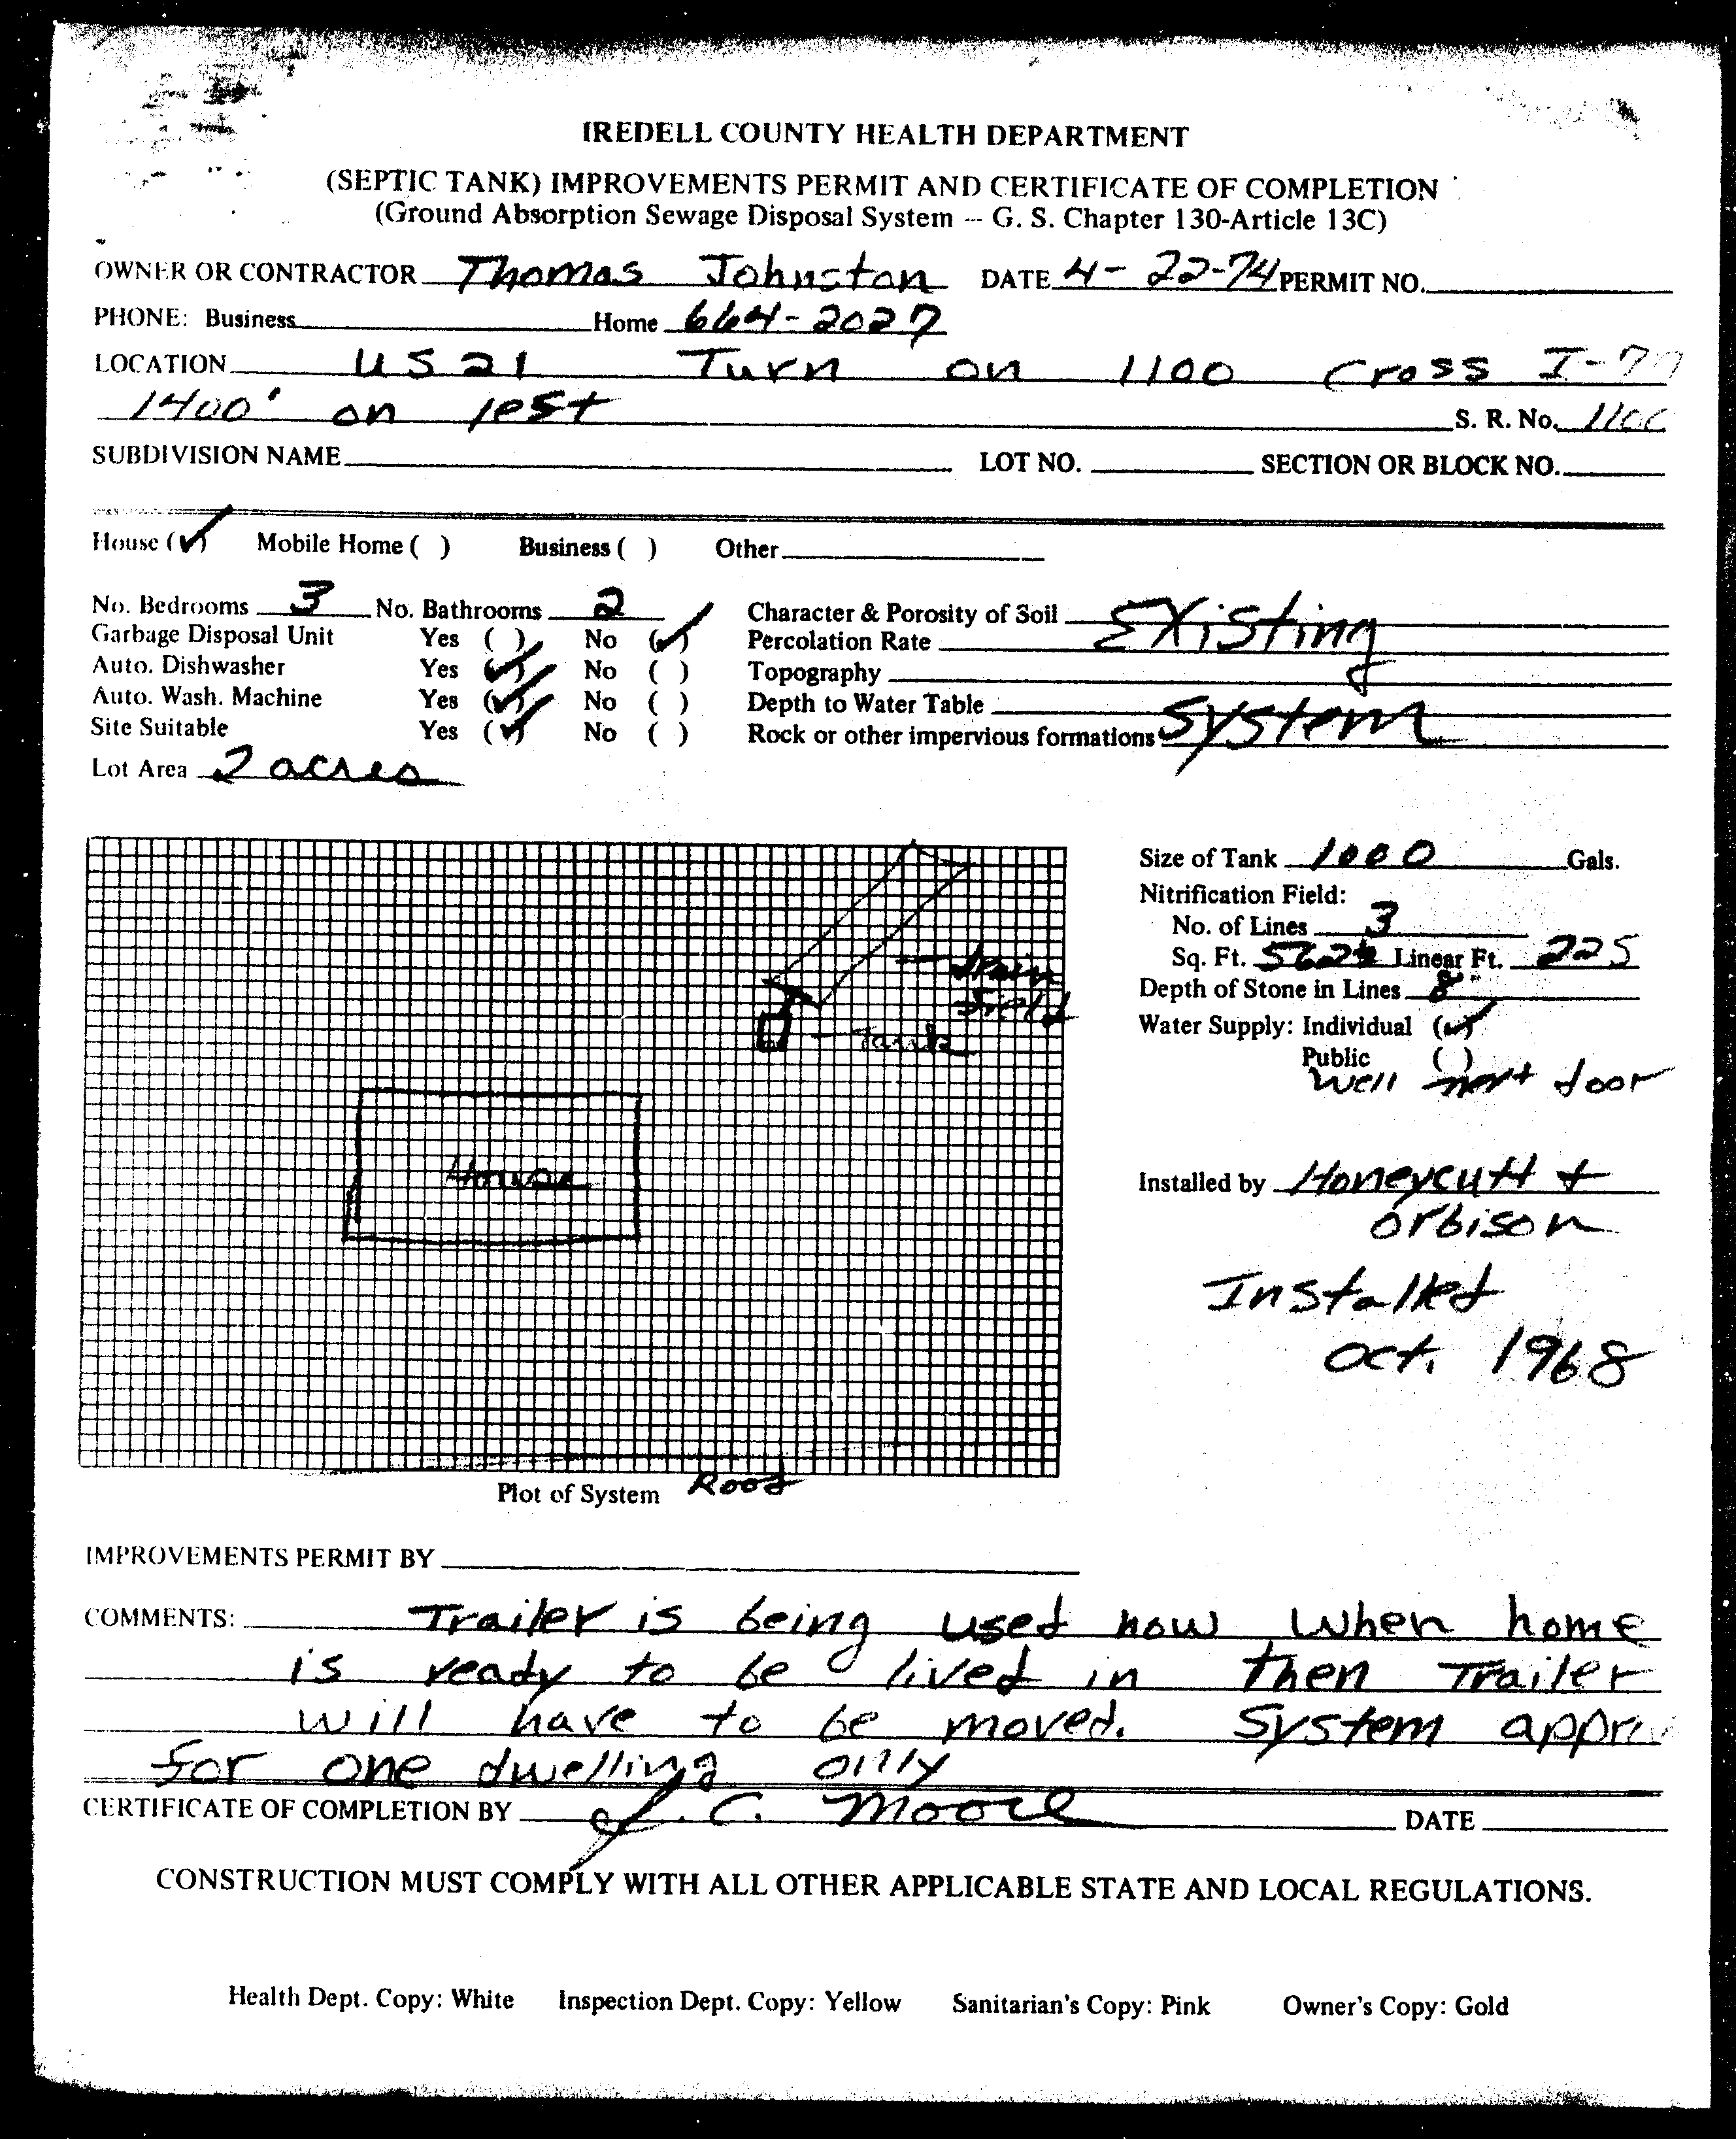 IREDELL COUNTY HEALTH DEPARTMENT
(SEPTIC TANK) IMPROVEMENTS PERMIT AND CERTIFICATE OF COMPLETION
(Ground Absorption Sewage Disposal System -- G. S. Chapter 130-Article 13C)
OWNER OR CONTRACTOR Thomas Johnston DATE 4-22-74 PERMIT NO.
PHONE: Business Home 664-2027
LOCATION US 21 Turn on 1100 Cross
1400' on left S. R. No. 1100
SUBDIVISION NAME LOT NO. SECTION OR BLOCK NO.
House (✓) Mobile Home ( ) Business ( ) Other
No. Bedrooms 3 No. Bathrooms 2 Character & Porosity of Soil Existing
Garbage Disposal Unit Yes ( ) No (✓) Percolation Rate
Auto. Dishwasher Yes (✓) No ( ) Topography
Auto. Wash. Machine Yes (✓) No ( ) Depth to Water Table
Site Suitable Yes (✓) No ( ) Rock or other impervious formations System
Lot Area 2 acres
Size of Tank 1000 Gals.
Nitrification Field:
No. of Lines 3
Sq. Ft. Linear Ft. 225
Depth of Stone in Lines 8"
Water Supply: Individual (✓)
Public ( )
Well next door
Drain
Field
Tank
House
Installed by Honeycutt +
Orbison
Installed
Oct. 1968
Plot of System Road
IMPROVEMENTS PERMIT BY
COMMENTS: Trailer is being used now When home
is ready to be lived in then Trailer
will have to be moved. System
for one dwelling only
CERTIFICATE OF COMPLETION BY J. C. Moore DATE
CONSTRUCTION MUST COMPLY WITH ALL OTHER APPLICABLE STATE AND LOCAL REGULATIONS.
Health Dept. Copy: White Inspection Dept. Copy: Yellow Sanitarian's Copy: Pink Owner's Copy: Gold